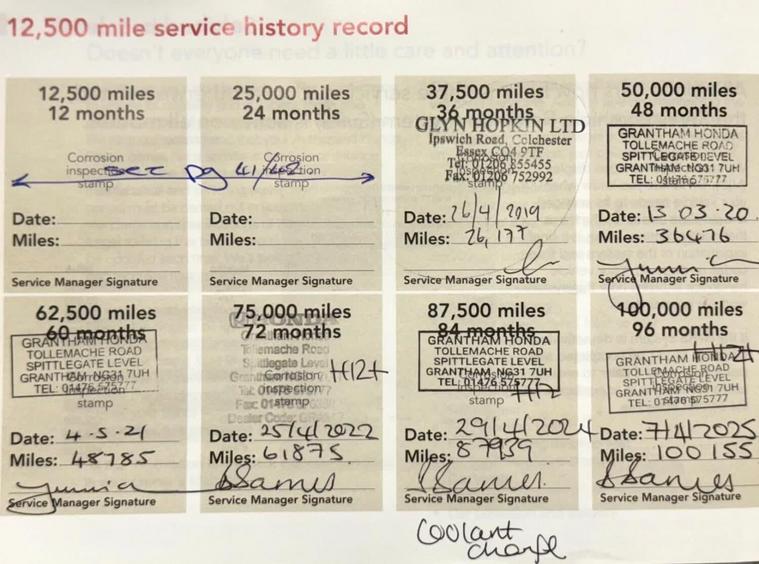 12,500 mile service history record
Doesn't everyone need a little care and attention?
12,500 miles
12 months
Corrosion
inspection
stamp
Date:
Miles:
Service Manager Signature
25,000 miles
24 months
Corrosion
inspection
stamp
see pg 41/42
Date:
Miles:
Service Manager Signature
37,500 miles
36 months
GLYN HOPKIN LTD
Ipswich Road, Colchester
Essex CO4 9TF
Tel: 01206 855455
Fax: 01206 752992
Date: 26/4/2019
Miles: 26,177
Service Manager Signature
50,000 miles
48 months
GRANTHAM HONDA
TOLLEMACHE ROAD
SPITTLEGATE LEVEL
GRANTHAM NG31 7UH
TEL: 01476 575777
Date: 13 03.20
Miles: 36476
Service Manager Signature
62,500 miles
60 months
GRANTHAM HONDA
TOLLEMACHE ROAD
SPITTLEGATE LEVEL
GRANTHAM NG31 7UH
TEL: 01476 575777
Corrosion
inspection
stamp
Date: 4.5.21
Miles: 48785
Service Manager Signature
75,000 miles
72 months
HONDA
Tollemache Road
Spittlegate Level
Corrosion
inspection
stamp
Dealer Code:
Date: 25/4/2022
Miles: 61875
Service Manager Signature
87,500 miles
84 months
GRANTHAM HONDA
TOLLEMACHE ROAD
SPITTLEGATE LEVEL
GRANTHAM NG31 7UH
TEL: 01476 575777
inspection
stamp
Date: 29/4/2024
Miles: 87939
Service Manager Signature
Coolant
change
100,000 miles
96 months
GRANTHAM HONDA
TOLLEMACHE ROAD
SPITTLEGATE LEVEL
GRANTHAM NG31 7UH
TEL: 01476 575777
stamp
Date: 7/4/2025
Miles: 100155
Service Manager Signature